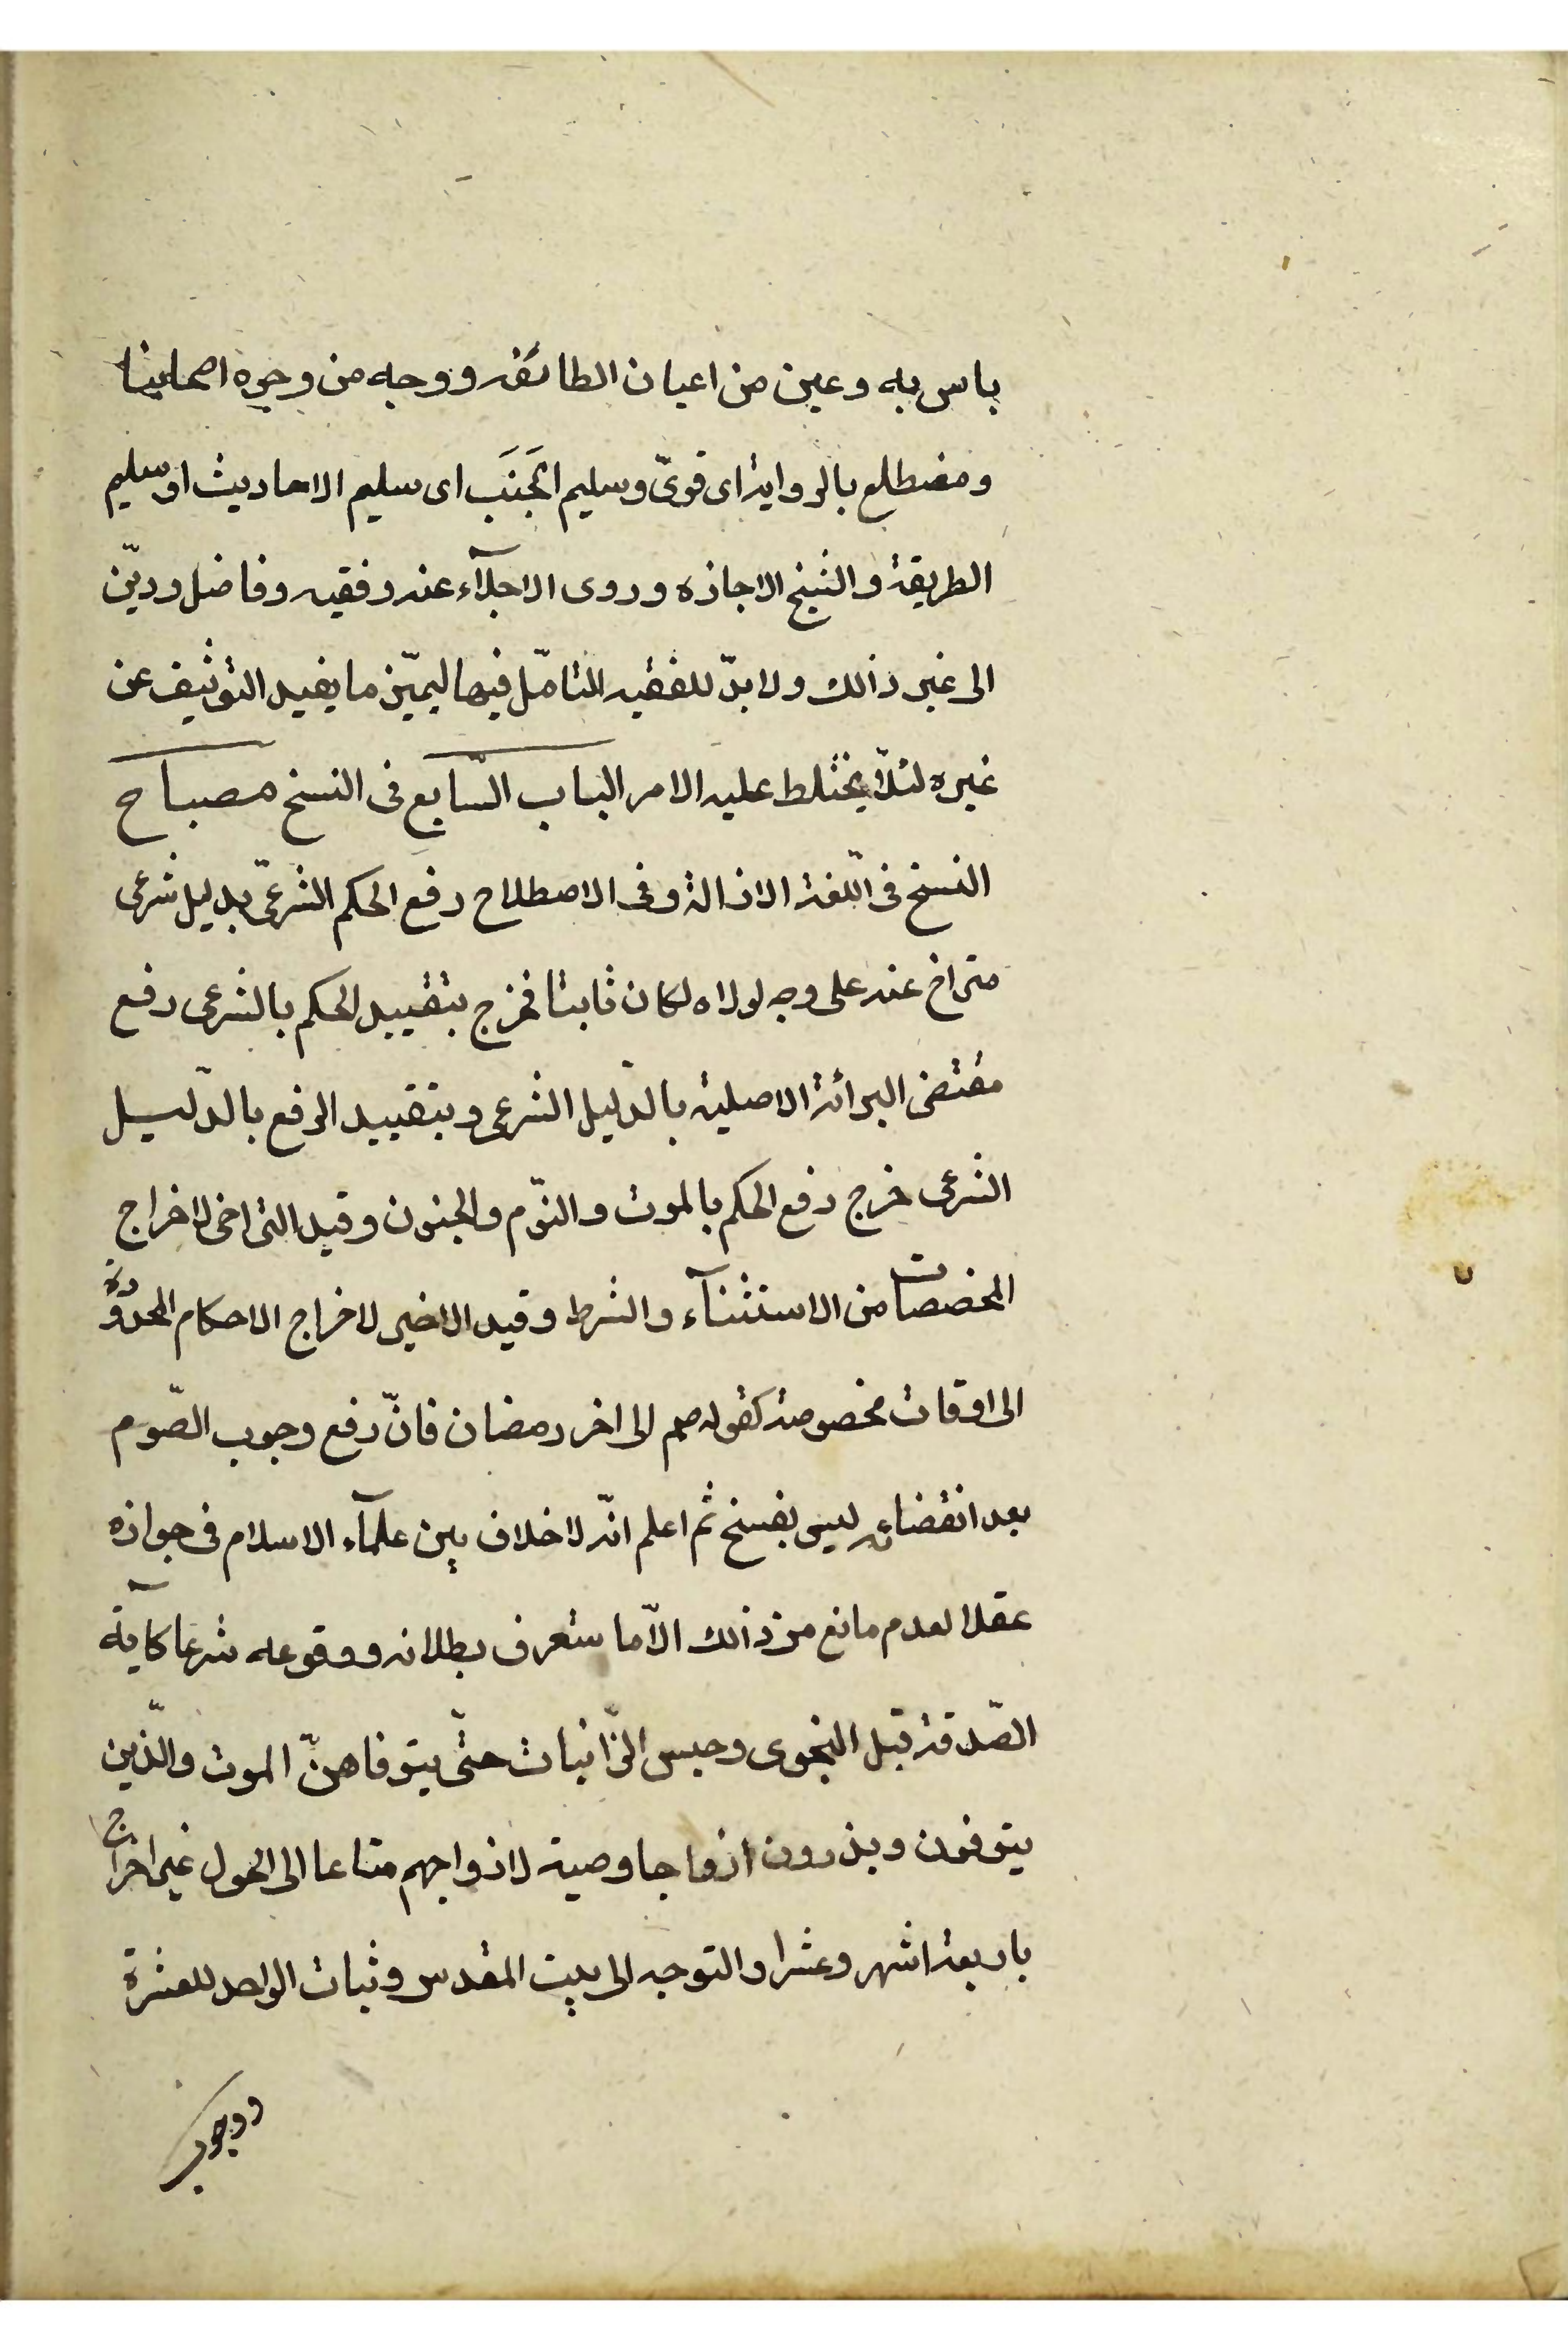 باس به وعين من اعيان الطائفة ووجه من وجوه اصحابنا
ومضطلع بالرواية اى قوىّ وسليم الجَنَبَ اى سليم الاحاديث او سليم
الطريقة والشيخ الاجازه وروى الاجلّآء عنه وفقيه وفاضل وديّن
الى غير ذالك ولا بدّ للفقيه التامّل فيها ليميّز ما يفيد التوثيق عن
غيره لئلّا يختلط عليه الامر الباب السّابع فى النسخ مصباح
النسخ فى اللّغة الازالة وفى الاصطلاح رفع الحكم الشرعىّ بدليل شرعى
متراخ عنه على وجه لولاه لكان ثابتا فخرج بتقييد الحكم بالشرعى رفع
مقتضى البرائة الاصلية بالدّليل الشرعى وبتقييد الرفع بالدّليل
الشرعى خرج رفع الحكم بالموت والنّوم والجنون وقيد التراخى لاخراج
المخصصات من الاستثنآء والشرط وقيد الاخير لاخراج الاحكام المحدودة
الى اوقات مخصوصة كقوله صم الى اخر رمضان فانّ رفع وجوب الصّوم
بعد انقضائه ليس بفسخ ثم اعلم انّه لا خلاف بين علمآء الاسلام فى جوازه
عقلا لعدم مانع من ذالك الّا ما ستعرف بطلانه ووقوعه شرعا كآية
الصّدقة قبل النجوى وحبس الزّانيات حتّى يتوفاهنّ الموت والّذين
يتوفون ويذرون ازواجا وصية لازواجهم متاعا الى الحول غير اخراج
باربعة اشهر وعشرا والتوجه الى بيت المقدس وثبات الواحد للعشرة
ووجوب